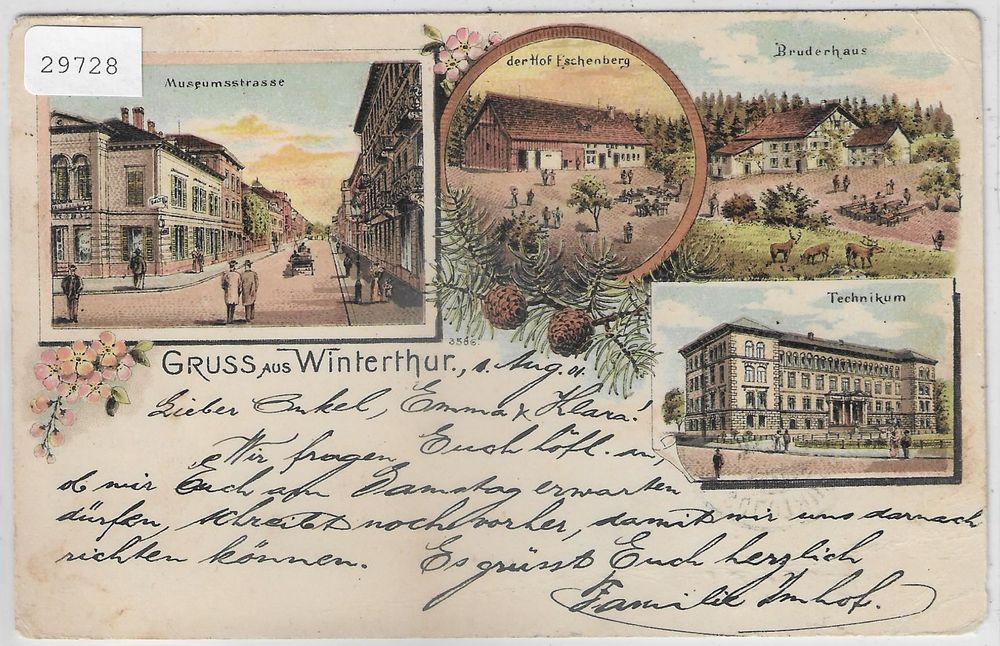 29728
Museumsstrasse
der Hof Eschenberg
Bruderhaus
Technikum
3586.
GRUSS AUS WINTERTHUR., 1. Aug. 01.
Lieber Onkel, Emma & Klara!
Wir fragen Euch höfl. an,
ob wir Euch am Samstag erwarten
dürfen, schreibt noch vorher, damit wir uns darnach
richten können. Es grüsst Euch herzlich
Familie Imhof.